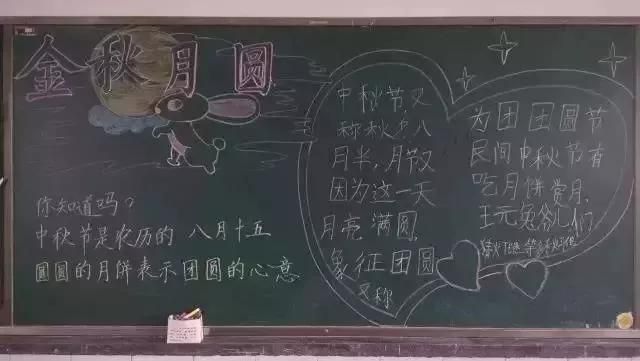 金秋月圆
你知道吗?
中秋节是农历的 八月十五
圆圆的月饼表示团圆的心意
中秋节,又
称秋夕、八
月半,月节又
因为这一天
月亮满圆,
象征团圆
又称
为团团圆节
民间中秋节有
吃月饼赏月,
玩兔爷儿们